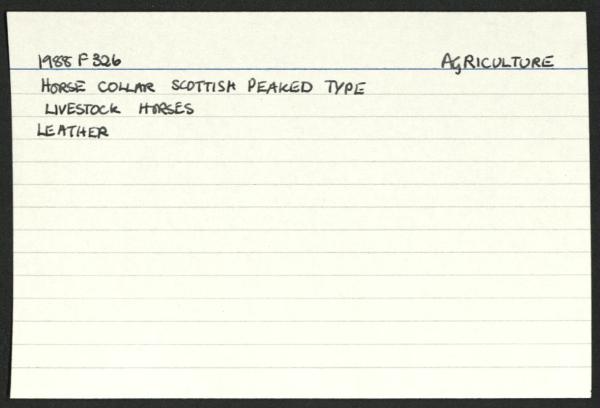 1988 F 326 AGRICULTURE
HORSE COLLAR SCOTTISH PEAKED TYPE
LIVESTOCK HORSES
LEATHER